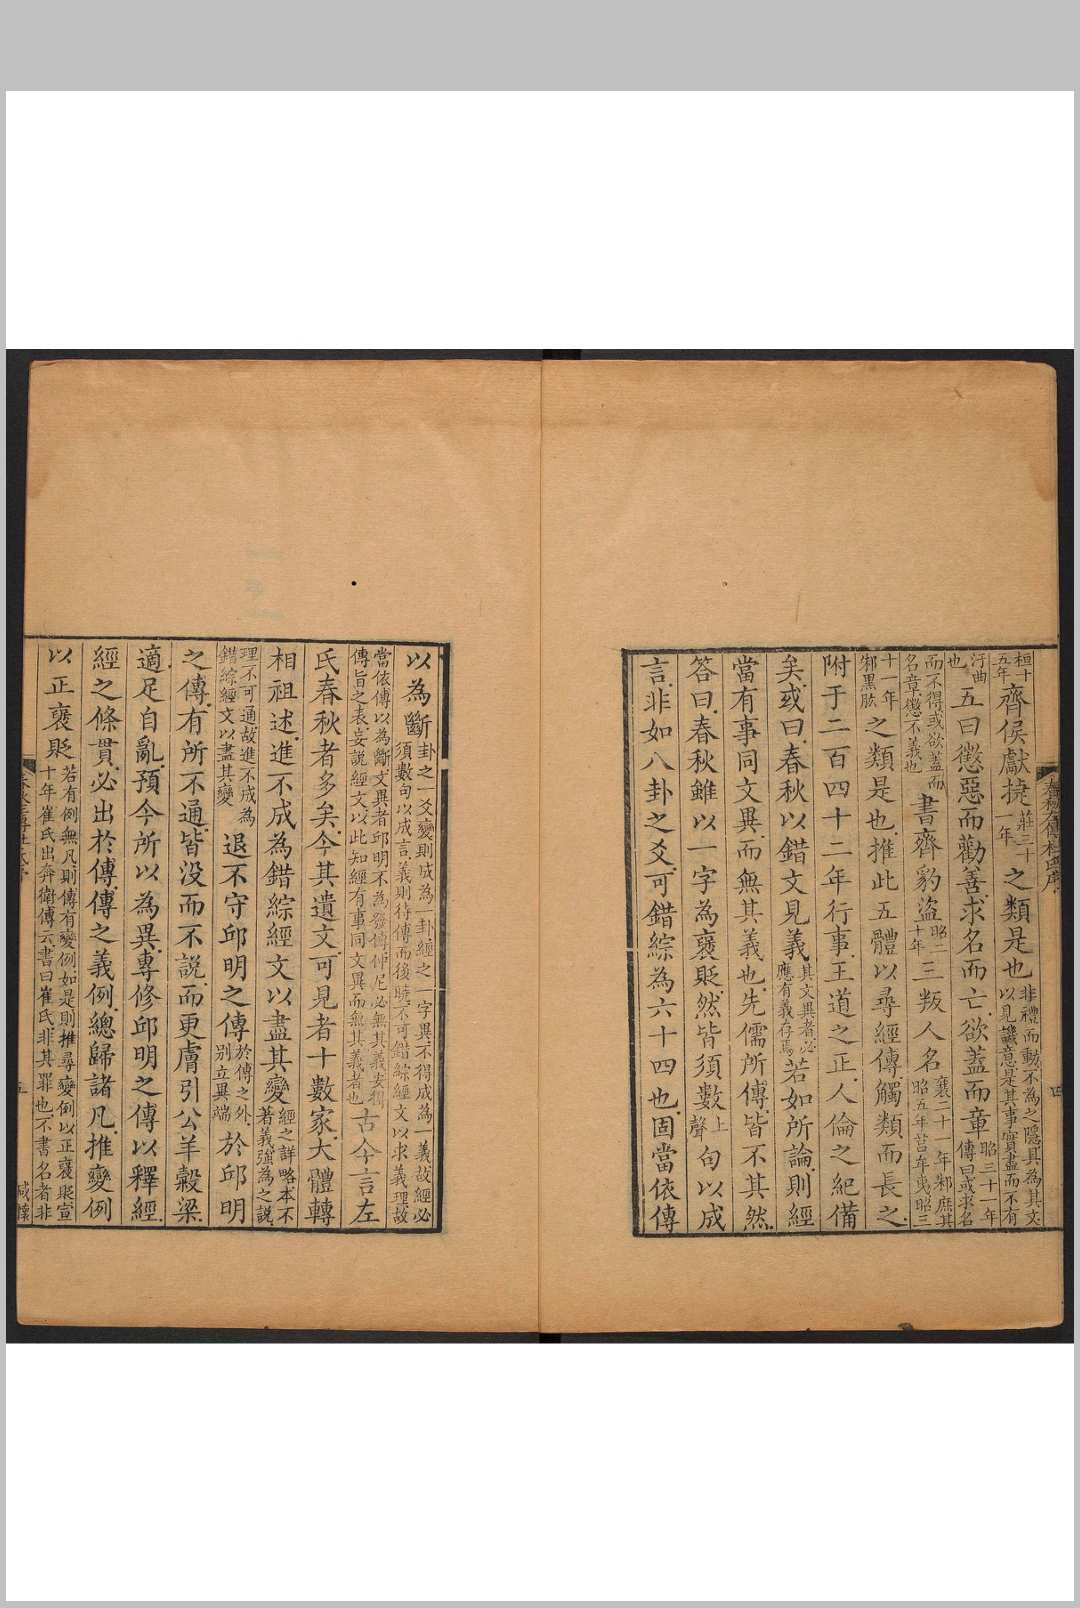 桓十五年齊侯獻捷莊三十一年之類是也非禮而動不為之隱具為其文以見譏意是其事實盡而不有
汙曲也五曰懲惡而勸善求名而亡欲蓋而章昭三十一年傳曰或求名
而不得或欲蓋而名章懲不義也書齊豹盜昭二十年三叛人名襄二十一年邾庶其昭五年莒牟夷昭三
十一年邾黑肱之類是也推此五體以尋經傳觸類而長之
附于二百四十二年行事王道之正人倫之紀備
矣或曰春秋以錯文見義其文異者必應有義存焉若如所論則經
當有事同文異而無其義也先儒所傳皆不其然
答曰春秋雖以一字為襃貶然皆須數上聲句以成
言非如八卦之爻可錯綜為六十四也固當依傳
春秋左傳杜氏序
四
以為斷卦之一爻變則成為一卦經之一字異不得成為一義故經必須數句以成言義則待傳而後曉不可錯綜經文以求義理故
當依傳以為斷文異者邱明不為發傳仲尼必無其義安得傳旨之表妄說經文以此知經有事同文異而無其義者也古今言左
氏春秋者多矣今其遺文可見者十數家大體轉
相祖述進不成為錯綜經文以盡其變經之詳略本不著義強為之說
理不可通故進不成為錯綜經文以盡其變退不守邱明之傳於傳之外別立異端於邱明
之傳有所不通皆沒而不說而更膚引公羊穀梁
適足自亂預今所以為異專修邱明之傳以釋經
經之條貫必出於傳傳之義例總歸諸凡推變例
以正襃貶若有例無凡則傳有變例如是則推尋變例以正襃貶宣十年崔氏出奔衛傳云書曰崔氏非其罪也不書名者非
五